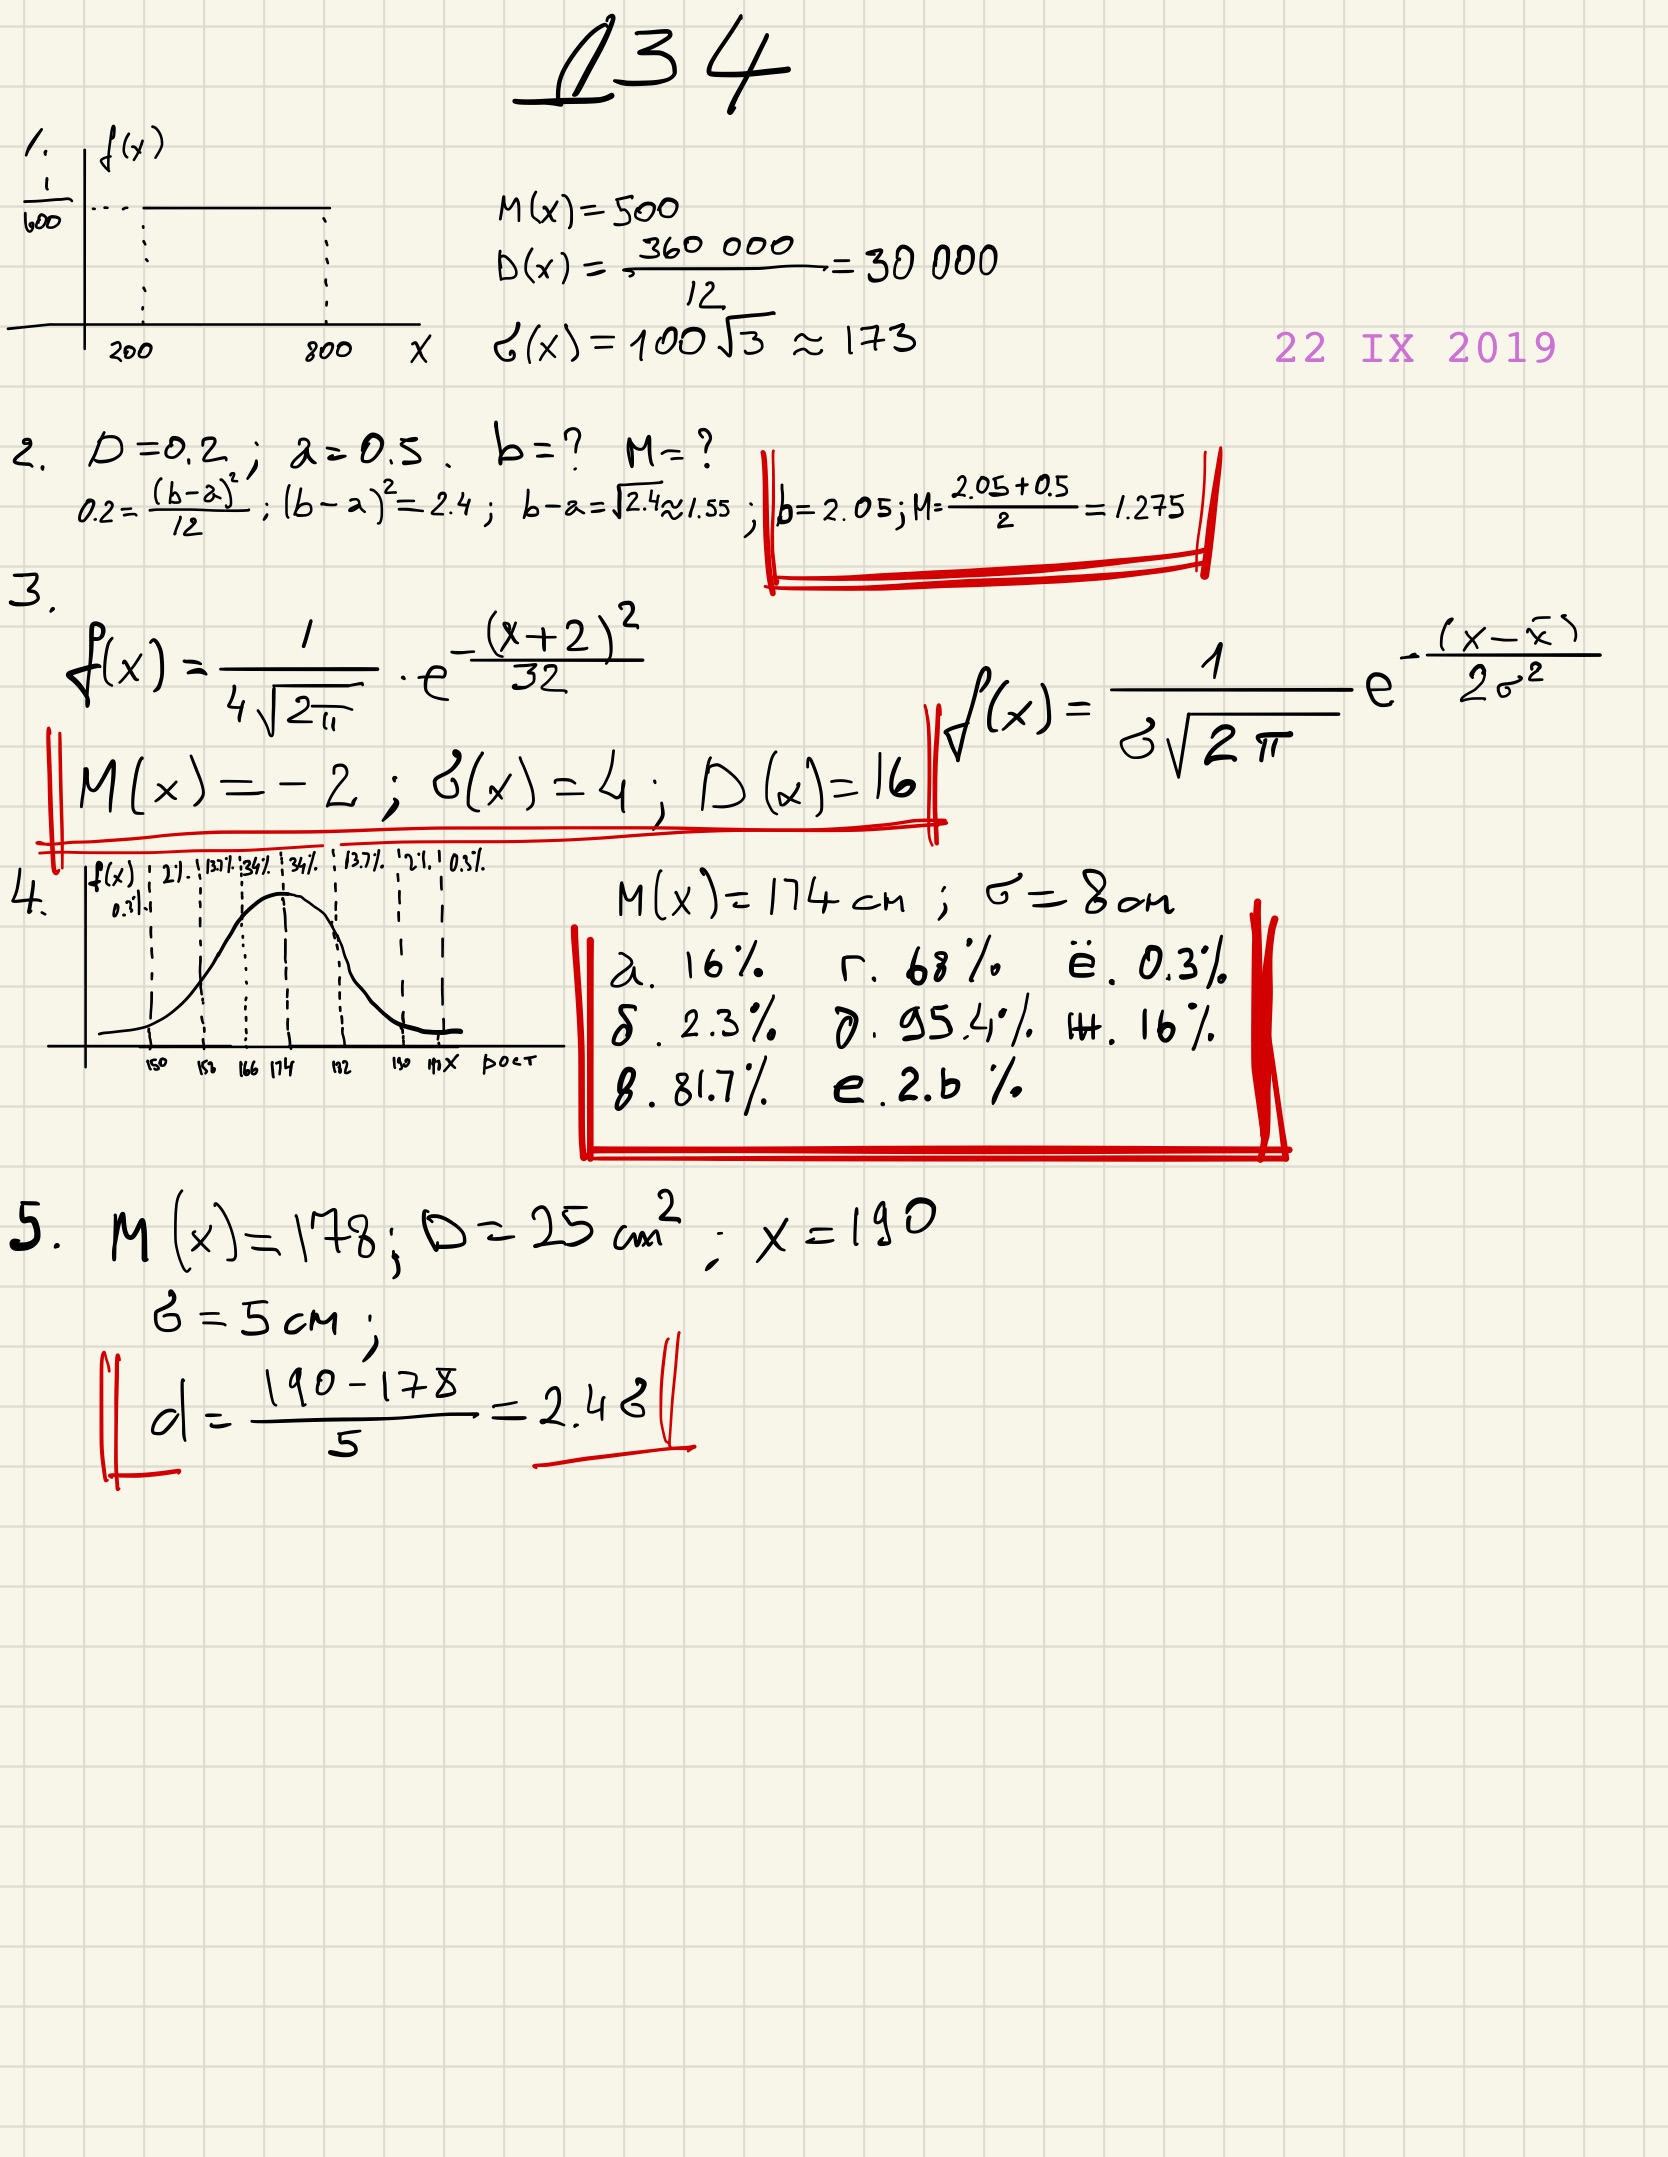 ДЗ 4
1. f(x)
1/600
200 800 X
M(x) = 500
D(x) = 360 000/12 = 30 000
σ(x) = 100√3 ≈ 173
22 IX 2019
2. D = 0.2; a = 0.5. b = ? M = ?
0.2 = (b-a)²/12; (b-a)² = 2.4; b-a = √2.4 ≈ 1.55; b = 2.05; M = (2.05+0.5)/2 = 1.275
3.
f(x) = 1/(4√2π) · e^(-(x+2)²/32)
f(x) = 1/(σ√2π) e^(-(x-x̄)/2σ²)
M(x) = -2; σ(x) = 4; D(x) = 16
4. f(x) 0.3% 2% 13.7% 34% 34% 13.7% 2% 0.3%
150 158 166 174 182 190 198 X рост
M(x) = 174 см; σ = 8 см
а. 16% г. 68% ё. 0.3%
б. 2.3% д. 95.4% ж. 16%
в. 81.7% е. 2.6 %
5. M(x) = 178; D = 25 см²; x = 190
σ = 5 см;
d = (190-178)/5 = 2.4σ